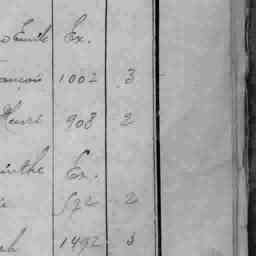 Emile Ex.
François 1002 3
Henri 908 2
Ex.
572 2
1492 3